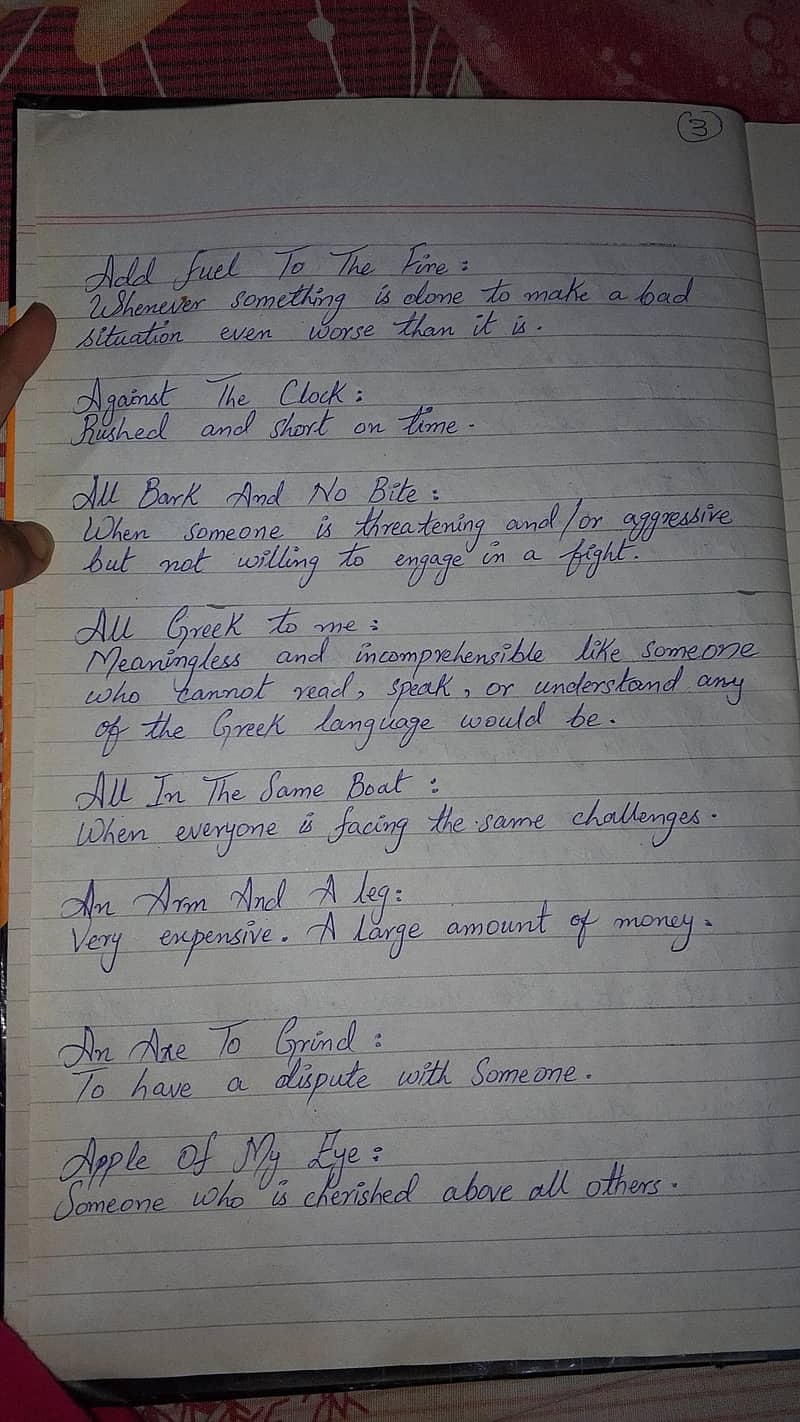 3
Add Fuel To The Fire :
Whenever something is done to make a bad
situation even worse than it is.
Against The Clock :
Rushed and short on time.
All Bark And No Bite :
When someone is threatening and/or aggressive
but not willing to engage in a fight.
All Greek to me :
Meaningless and incomprehensible like someone
who cannot read, speak, or understand any
of the Greek language would be.
All In The Same Boat :
When everyone is facing the same challenges.
An Arm And A leg :
Very expensive. A large amount of money.
An Axe To Grind :
To have a dispute with Someone.
Apple Of My Eye :
Someone who is cherished above all others.